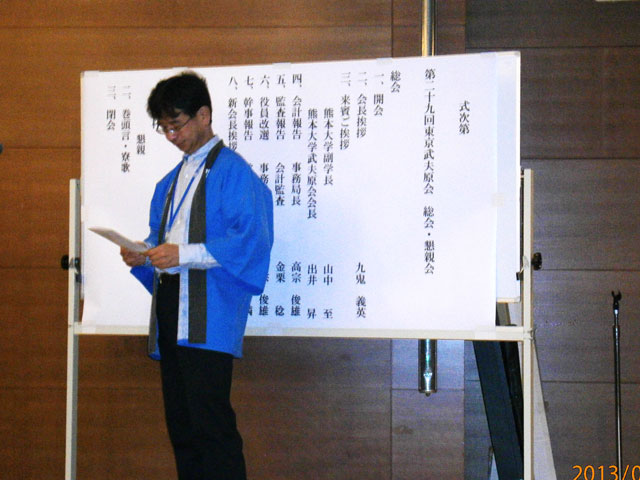 式次第
第二十九回東京武夫原会 総会・懇親会
総会
一、開会
二、会長挨拶 九鬼 義英
三、来賓ご挨拶
熊本大学副学長 山中 至
熊本大学武夫原会会長 出井 昇
四、会計報告 事務局長 高宗 俊雄
五、監査報告 会計監査 金栗 稔
六、役員改選 事務 俊雄
七、幹事報告
八、新会長挨拶
懇親
二、巻頭言・寮歌
三、閉会
2013/0